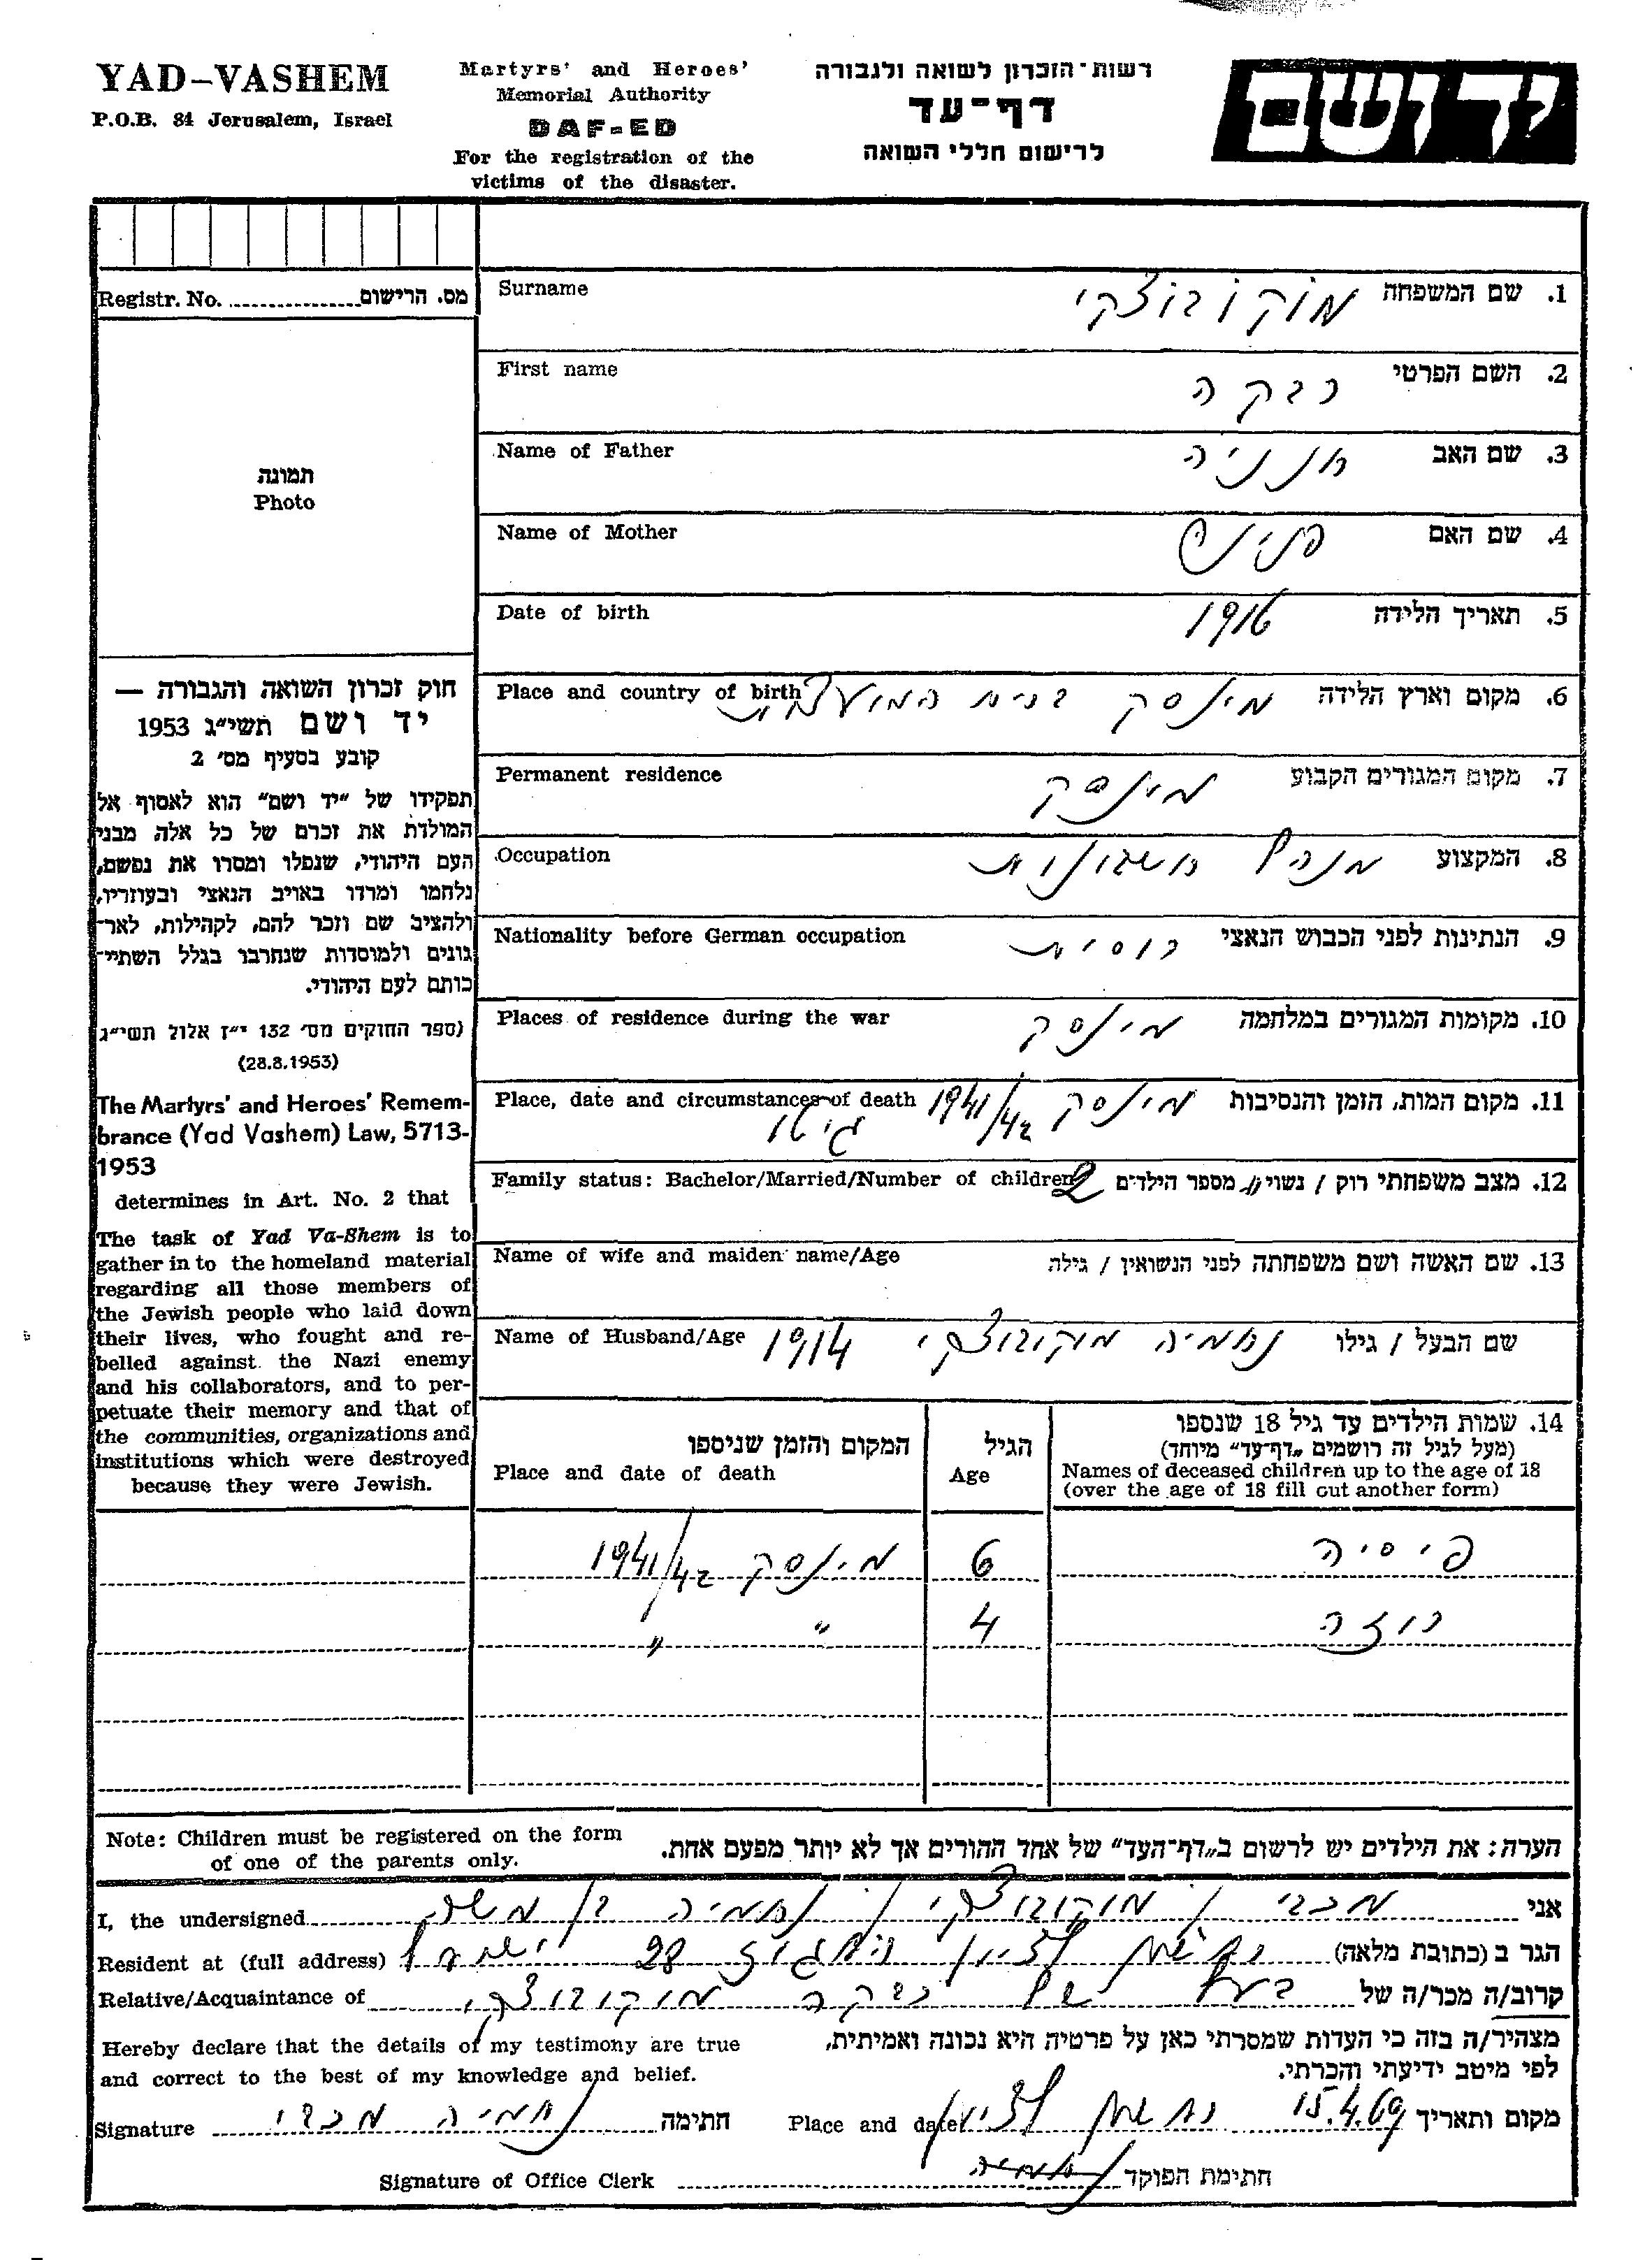 YAD-VASHEM
P.O.B. 84 Jerusalem, Israel
Martyrs' and Heroes'
Memorial Authority
DAF-ED
For the registration of the
victims of the disaster.
רשות-הזכרון לשואה ולגבורה
דף-עד
לרישום חללי השואה
יד ושם
Registr. No. ............... מס. הרישום
תמונה
Photo
חוק זכרון השואה והגבורה —
יד ושם תשי"ג 1953
קובע בסעיף מס' 2
תפקידו של "יד ושם" הוא לאסוף אל
המולדת את זכרם של כל אלה מבני
העם היהודי, שנפלו ומסרו את נפשם,
נלחמו ומרדו באויב הנאצי ובעוזריו,
ולהציב שם וזכר להם, לקהילות, לאר-
גונים ולמוסדות שנחרבו בגלל השתיי-
כותם לעם היהודי.
(ספר החוקים מס' 132 י"ז אלול תשי"ג
(28.8.1953)
The Martyrs' and Heroes' Remem-
brance (Yad Vashem) Law, 5713-
1953
determines in Art. No. 2 that
The task of Yad Va-Shem is to
gather in to the homeland material
regarding all those members of
the Jewish people who laid down
their lives, who fought and re-
belled against the Nazi enemy
and his collaborators, and to per-
petuate their memory and that of
the communities, organizations and
institutions which were destroyed
because they were Jewish.
Surname מוקובוצקי שם המשפחה .1
First name רבקה השם הפרטי .2
Name of Father חנניה שם האב .3
Name of Mother שם האם .4
Date of birth 1916 תאריך הלידה .5
Place and country of birth מינסק ברית המועצות מקום וארץ הלידה .6
Permanent residence מינסק מקום המגורים הקבוע .7
Occupation מנהל חשבונות המקצוע .8
Nationality before German occupation רוסית הנתינות לפני הכבוש הנאצי .9
Places of residence during the war מינסק מקומות המגורים במלחמה .10
Place, date and circumstances of death מינסק 1941/42 מקום המות, הזמן והנסיבות .11
גיטו
Family status: Bachelor/Married/Number of children 2 מצב משפחתי רוק / נשוי / מספר הילדים .12
Name of wife and maiden name/Age שם האשה ושם משפחתה לפני הנשואין / גילה .13
Name of Husband/Age נחמיה מוקובוצקי 1914 שם הבעל / גילו
14. שמות הילדים עד גיל 18 שנספו
(מעל לגיל זה רושמים "דף-עד" מיוחד)
Names of deceased children up to the age of 18
(over the age of 18 fill out another form)
הגיל
Age
המקום והזמן שניספו
Place and date of death
פיסיה 6 מינסק 1941/42
רוזה 4 " "
Note: Children must be registered on the form
of one of the parents only.
הערה: את הילדים יש לרשום ב"דף-העד" של אחד ההורים אך לא יותר מפעם אחת.
I, the undersigned מכבי / מוקובוצקי / נחמיה בן משה אני
Resident at (full address) נחלת 28 ישראל הגר ב (כתובת מלאה)
Relative/Acquaintance of בעל של רבקה מוקובוצקי קרוב/ה מכר/ה של
Hereby declare that the details of my testimony are true
and correct to the best of my knowledge and belief.
מצהיר/ה בזה כי העדות שמסרתי כאן על פרטיה היא נכונה ואמיתית,
לפי מיטב ידיעתי והכרתי.
Signature נחמיה מכבי חתימה
Place and date 15.4.69 מקום ותאריך
Signature of Office Clerk נחמיה חתימת הפוקד